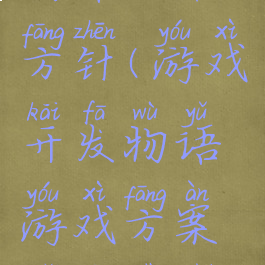 fāng zhēn yóu xì
方针(游戏
kāi fā wù yǔ
开发物语
yóu xì fāng àn
游戏方案